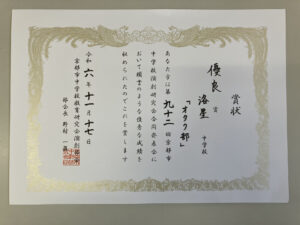 賞状
優良賞
洛星 中学校
「オタク部」
あなた方は第九十二回京都市
中学校演劇研究会合同発表会に
おいて頭書のような優秀な成績を
収められたのでこれを賞します
令和六年十一月十七日
京都市中学校教育研究会演劇部会
部会長 野村